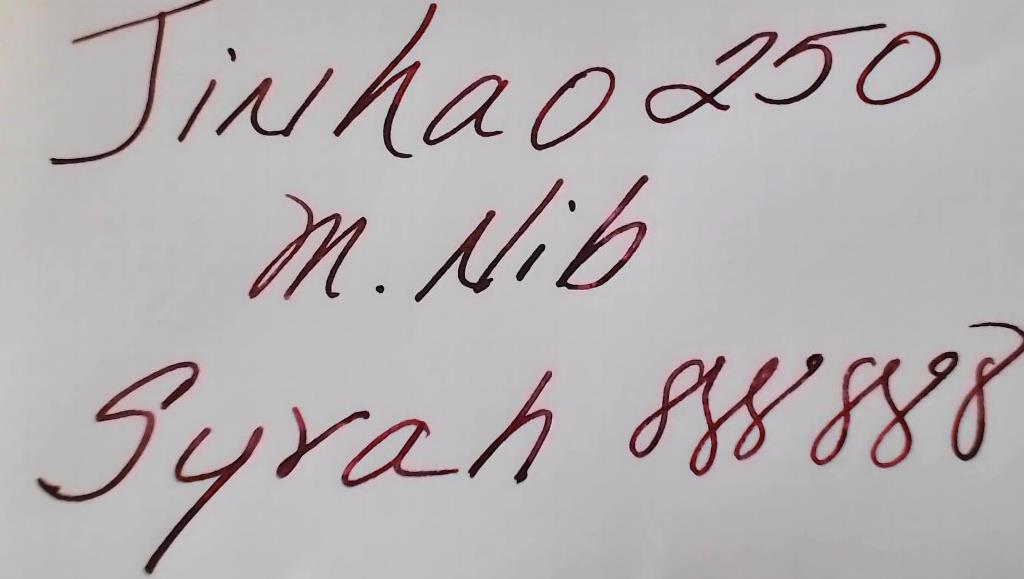 Jinhao 250
M. Nib
Syrah 888 888 8